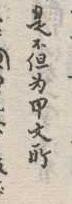 是不但为甲文所